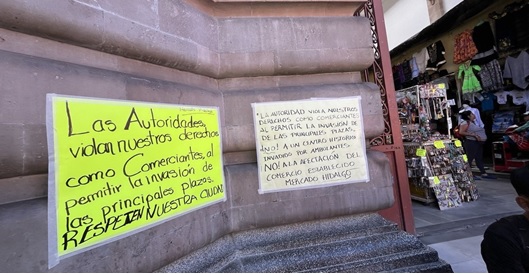 Las Autoridades,
violan nuestros derechos
como Comerciantes, al
permitir la invasión de
las principales plazas.
RESPETEN NUESTRA CIUDAD
"LA AUTORIDAD VIOLA NUESTROS
DERECHOS COMO COMERCIANTES
AL PERMITIR LA INVASIÓN DE
DE LAS PRINCIPALES PLAZAS.
¡NO! A UN CENTRO HISTORICO
INVADIDO POR AMBULANTES.
NO! A LA AFECTACIÓN DEL
COMERCIO ESTABLECIDO
MERCADO HIDALGO